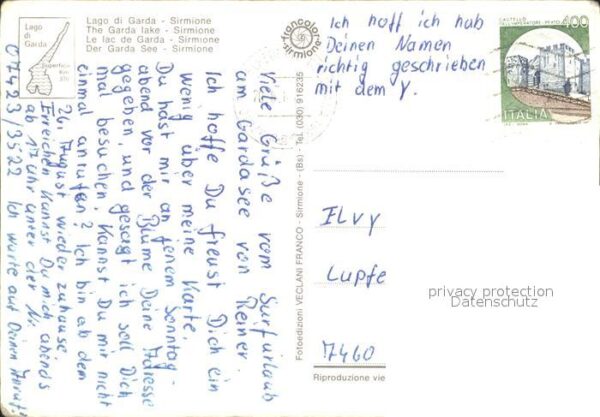 Lago di Garda - Sirmione
The Garda lake - Sirmione
Le lac de Garda - Sirmione
Der Garda See - Sirmione
Lago
di
Garda
Superficie
Km.
370
francolor
sirmione
Viele Grüße vom Surfurlaub
am Gardasee von Reiner.
Ich hoffe Du freust Dich ein
wenig über meine Karte.
Du hast mir an jenem Sonntag-
abend vor der Blume Deine Adresse
gegeben, und gesagt ich soll Dich
mal besuchen. Kannst Du mir nicht
einmal anrufen? Ich bin ab dem
26. August wieder zuhause.
Erreichen kannst Du mich abends
ab 17 Uhr unter der Nr.
07423/3522 Ich warte auf Deinen Anruf!
Fotoedizioni VECLANI FRANCO - Sirmione - (Bs) - Tel. (030) 916235
Ich hoff ich hab
Deinen Namen
richtig geschrieben
mit dem Y.
CASTELLO
DELL'IMPERATORE - PRATO
400
ITALIA
Ilvy
Lupfe
7460
Riproduzione vie
privacy protection
Datenschutz